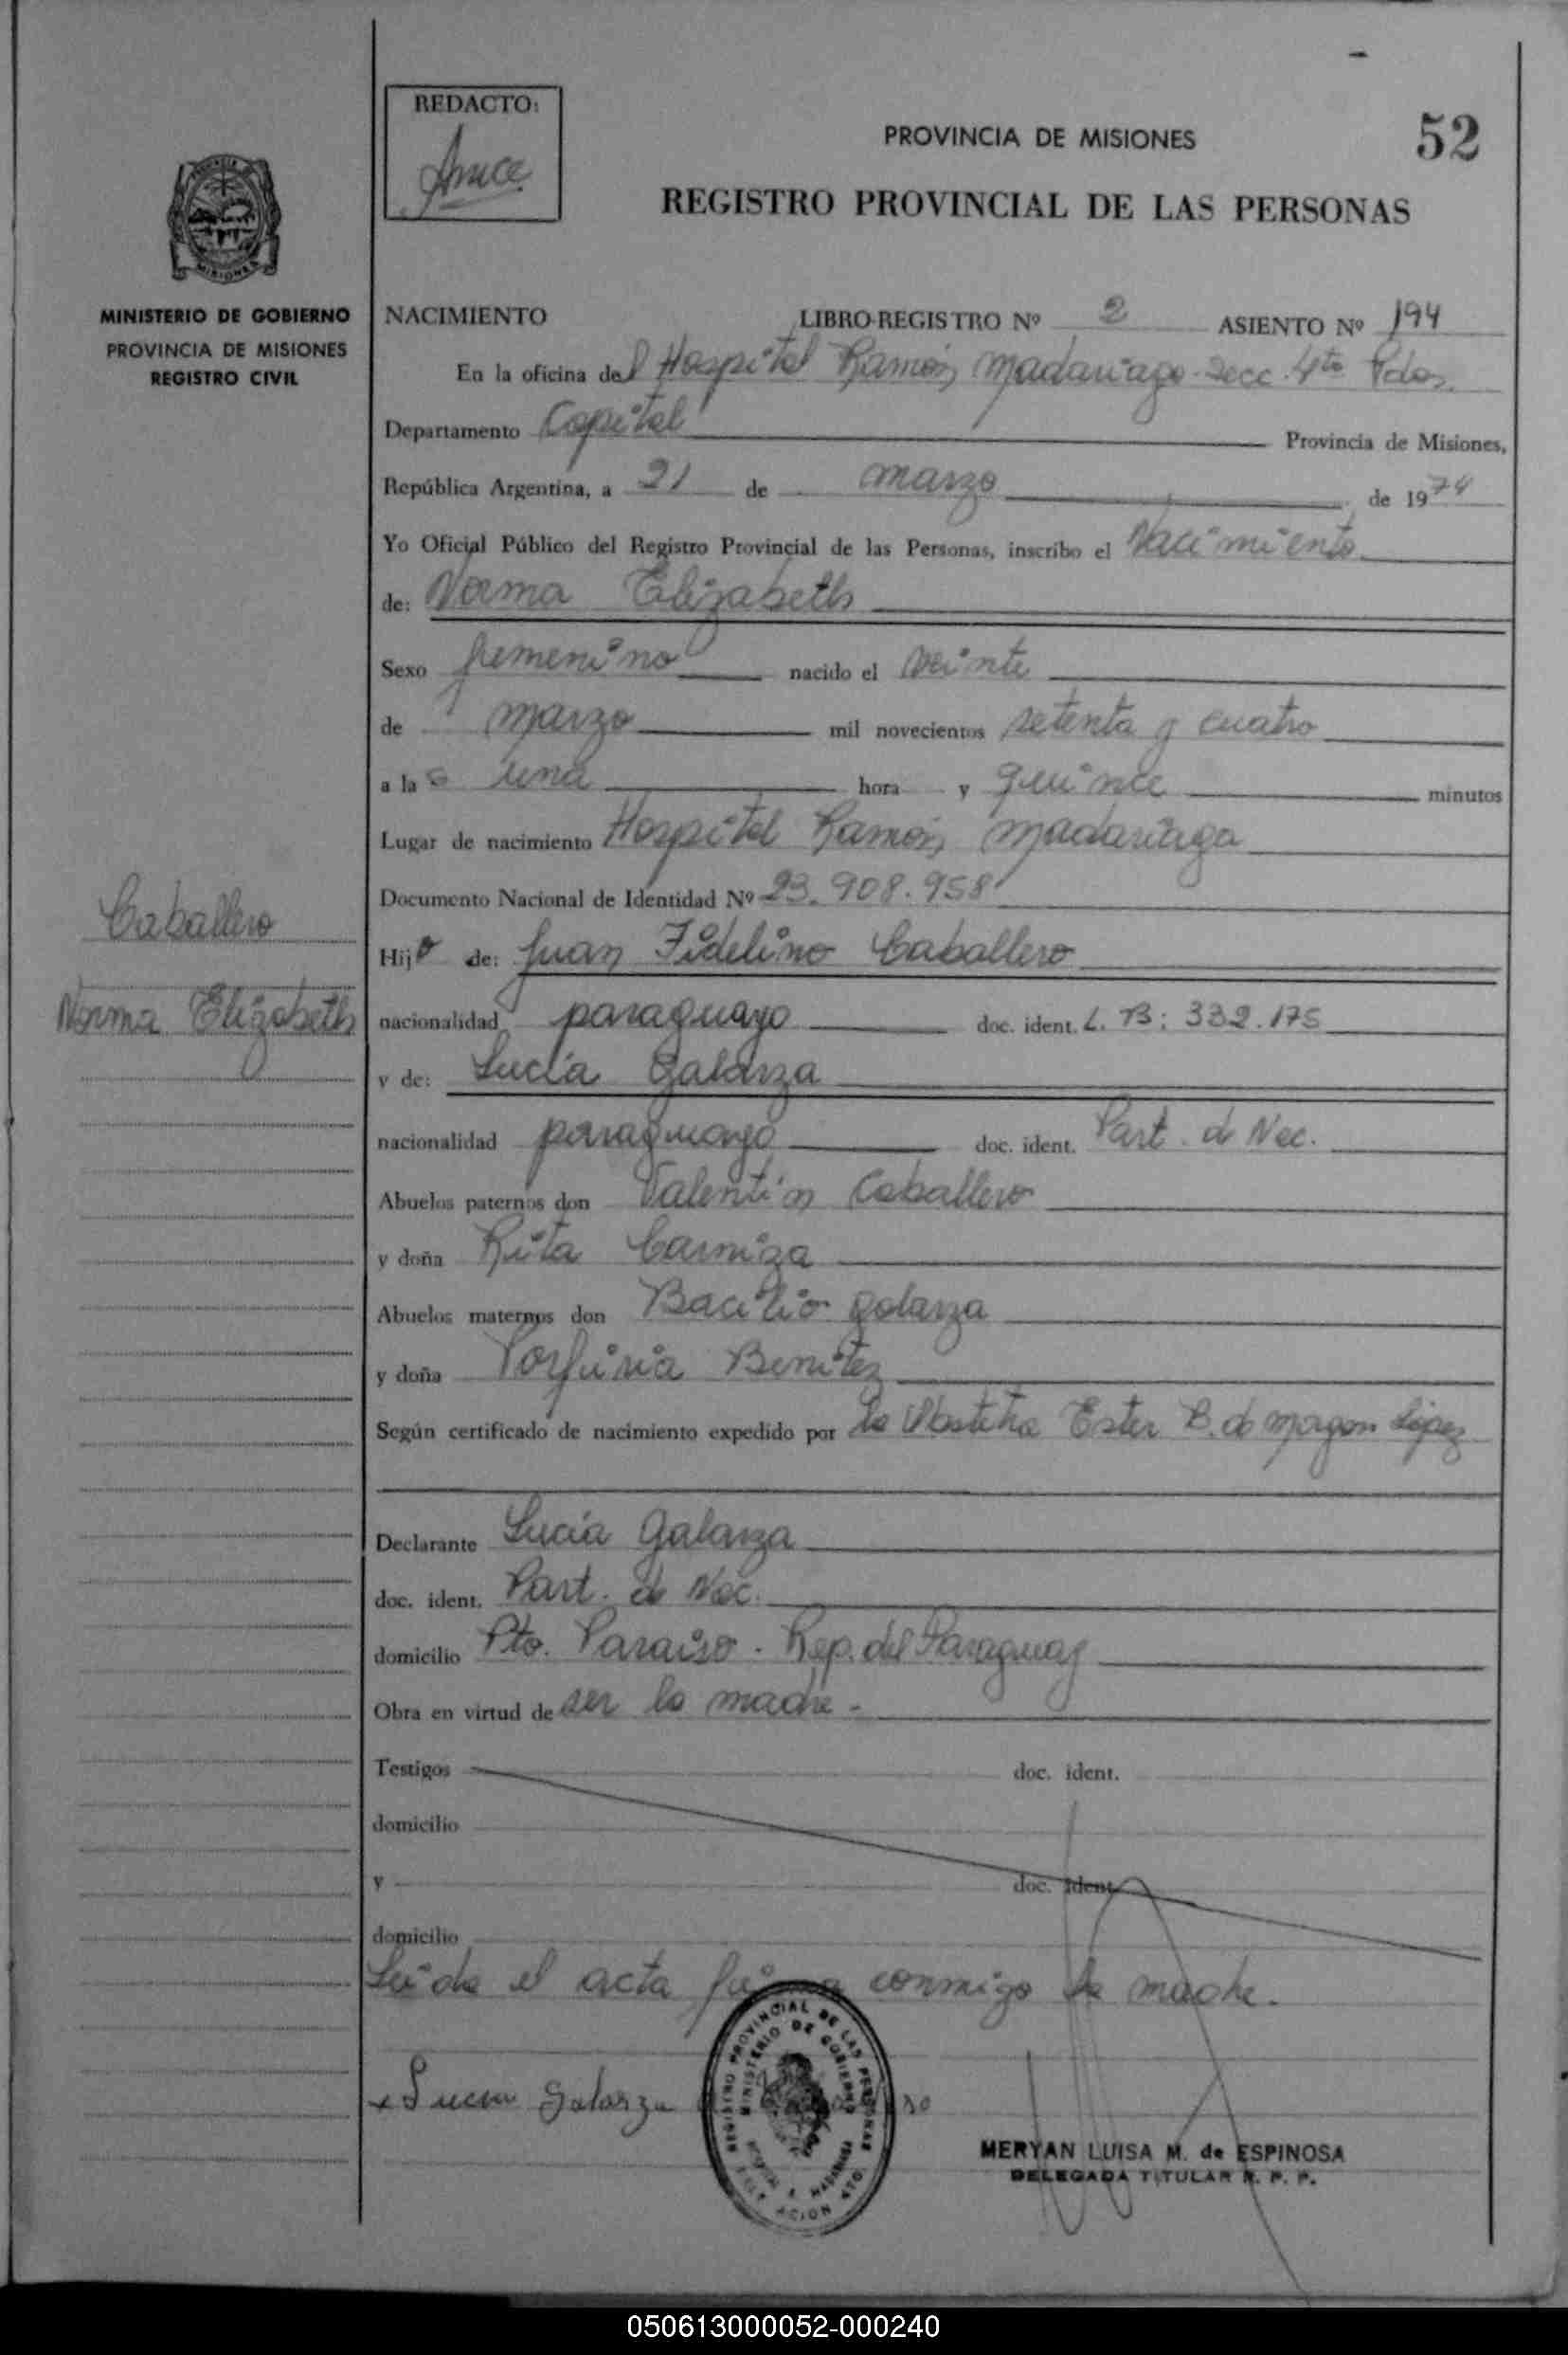 REDACTO:
PROVINCIA DE MISIONES
52
REGISTRO PROVINCIAL DE LAS PERSONAS
MISIONES
MINISTERIO DE GOBIERNO
PROVINCIA DE MISIONES
REGISTRO CIVIL
NACIMIENTO LIBRO-REGISTRO Nº 2 ASIENTO Nº 194
En la oficina del Hospital Ramón Madariaga - Secc. 4ta Pdas.
Departamento Capital Provincia de Misiones,
República Argentina, a 21 de marzo de 1974
Yo Oficial Público del Registro Provincial de las Personas, inscribo el Nacimiento
de: Norma Elizabeth
Sexo femenino nacido el veinte
de marzo mil novecientos setenta y cuatro
a la s una hora y quince minutos
Lugar de nacimiento Hospital Ramón Madariaga
Documento Nacional de Identidad Nº 23.908.958
Caballero
Norma Elizabeth
Hijo de: Juan Fidelino Caballero
nacionalidad paraguayo doc. ident. L. B: 332.175
y de: Lucía Galarza
nacionalidad paraguaya doc. ident. Part. de Nac.
Abuelos paternos don Valentín Caballero
y doña Rita
Abuelos maternos don Bacilio Galarza
y doña Porfiria Benitez
Según certificado de nacimiento expedido por la Obstetra Ester B. de López
Declarante Lucía Galarza
doc. ident. Part. de Nac.
domicilio Pto. Paraiso - Rep. del Paraguay
Obra en virtud de ser la madre -
Testigos doc. ident.
domicilio
y doc. ident.
domicilio
Leída el acta firma conmigo la madre.
Lucia Galarza
REGISTRO PROVINCIAL DE LAS PERSONAS
MINISTERIO DE GOBIERNO
MERYAN LUISA M. de ESPINOSA
DELEGADA TITULAR R. P. P.
050613000052-000240